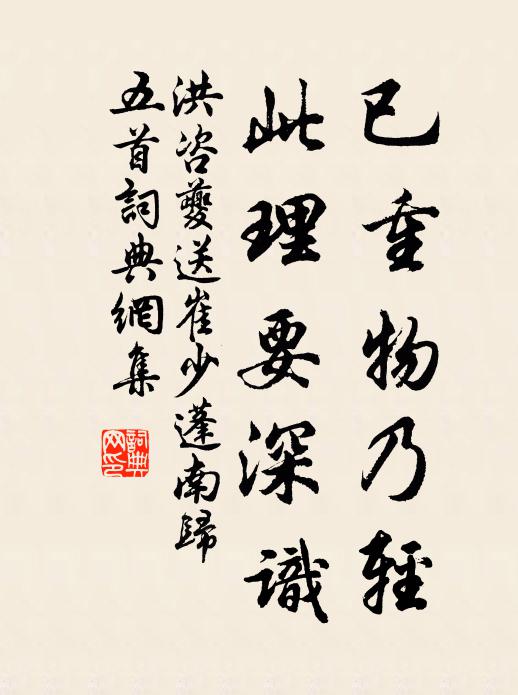 已重物乃輕
此理要深識
洪咨夔送崔少蓬南歸
五首詞典網集
詞典網印